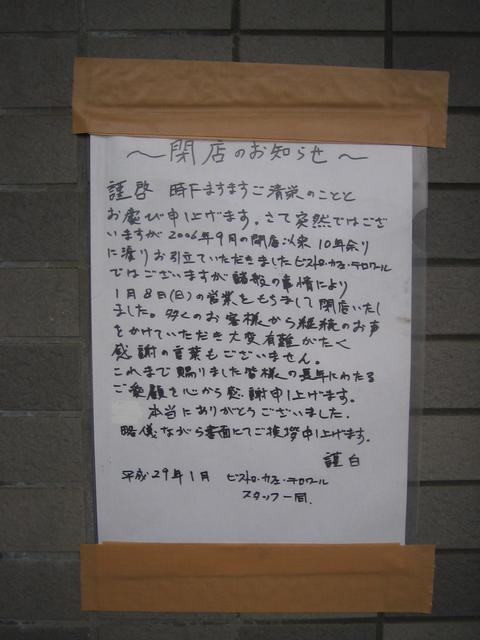 ～閉店のお知らせ～
謹啓 時下ますますご清栄のことと
お慶び申上げます。さて突然ではござ
いますが2006年9月の開店以来10年余り
に渡りお引立ていただきましたビストロ・カフェ・テロワール
ではございますが諸般の事情により
1月8日(日)の営業をもちまして閉店いたし
ました。多くのお客様から継続のお声
をかけていただき大変有難がたく
感謝の言葉もございません。
これまで賜りました皆様の長年にわたる
ご愛顧を心から感謝申上げます。
本当にありがとうございました。
略儀ながら書面にてご挨拶申上げます。
謹白
平成29年1月 ビストロ・カフェ・テロワール
スタッフ一同.